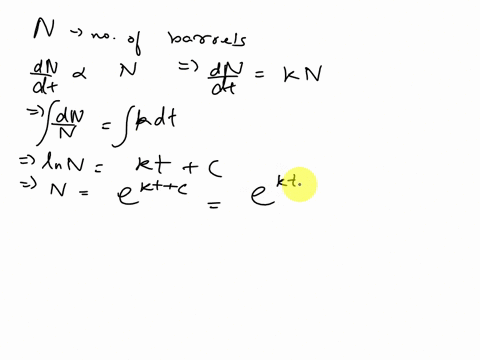 N → no. of barrels
dN/dt ∝ N ⇒ dN/dt = kN
⇒ ∫dN/N = ∫k dt
⇒ ln N = kt + C
⇒ N = e^(kt+c) = e^(kt.